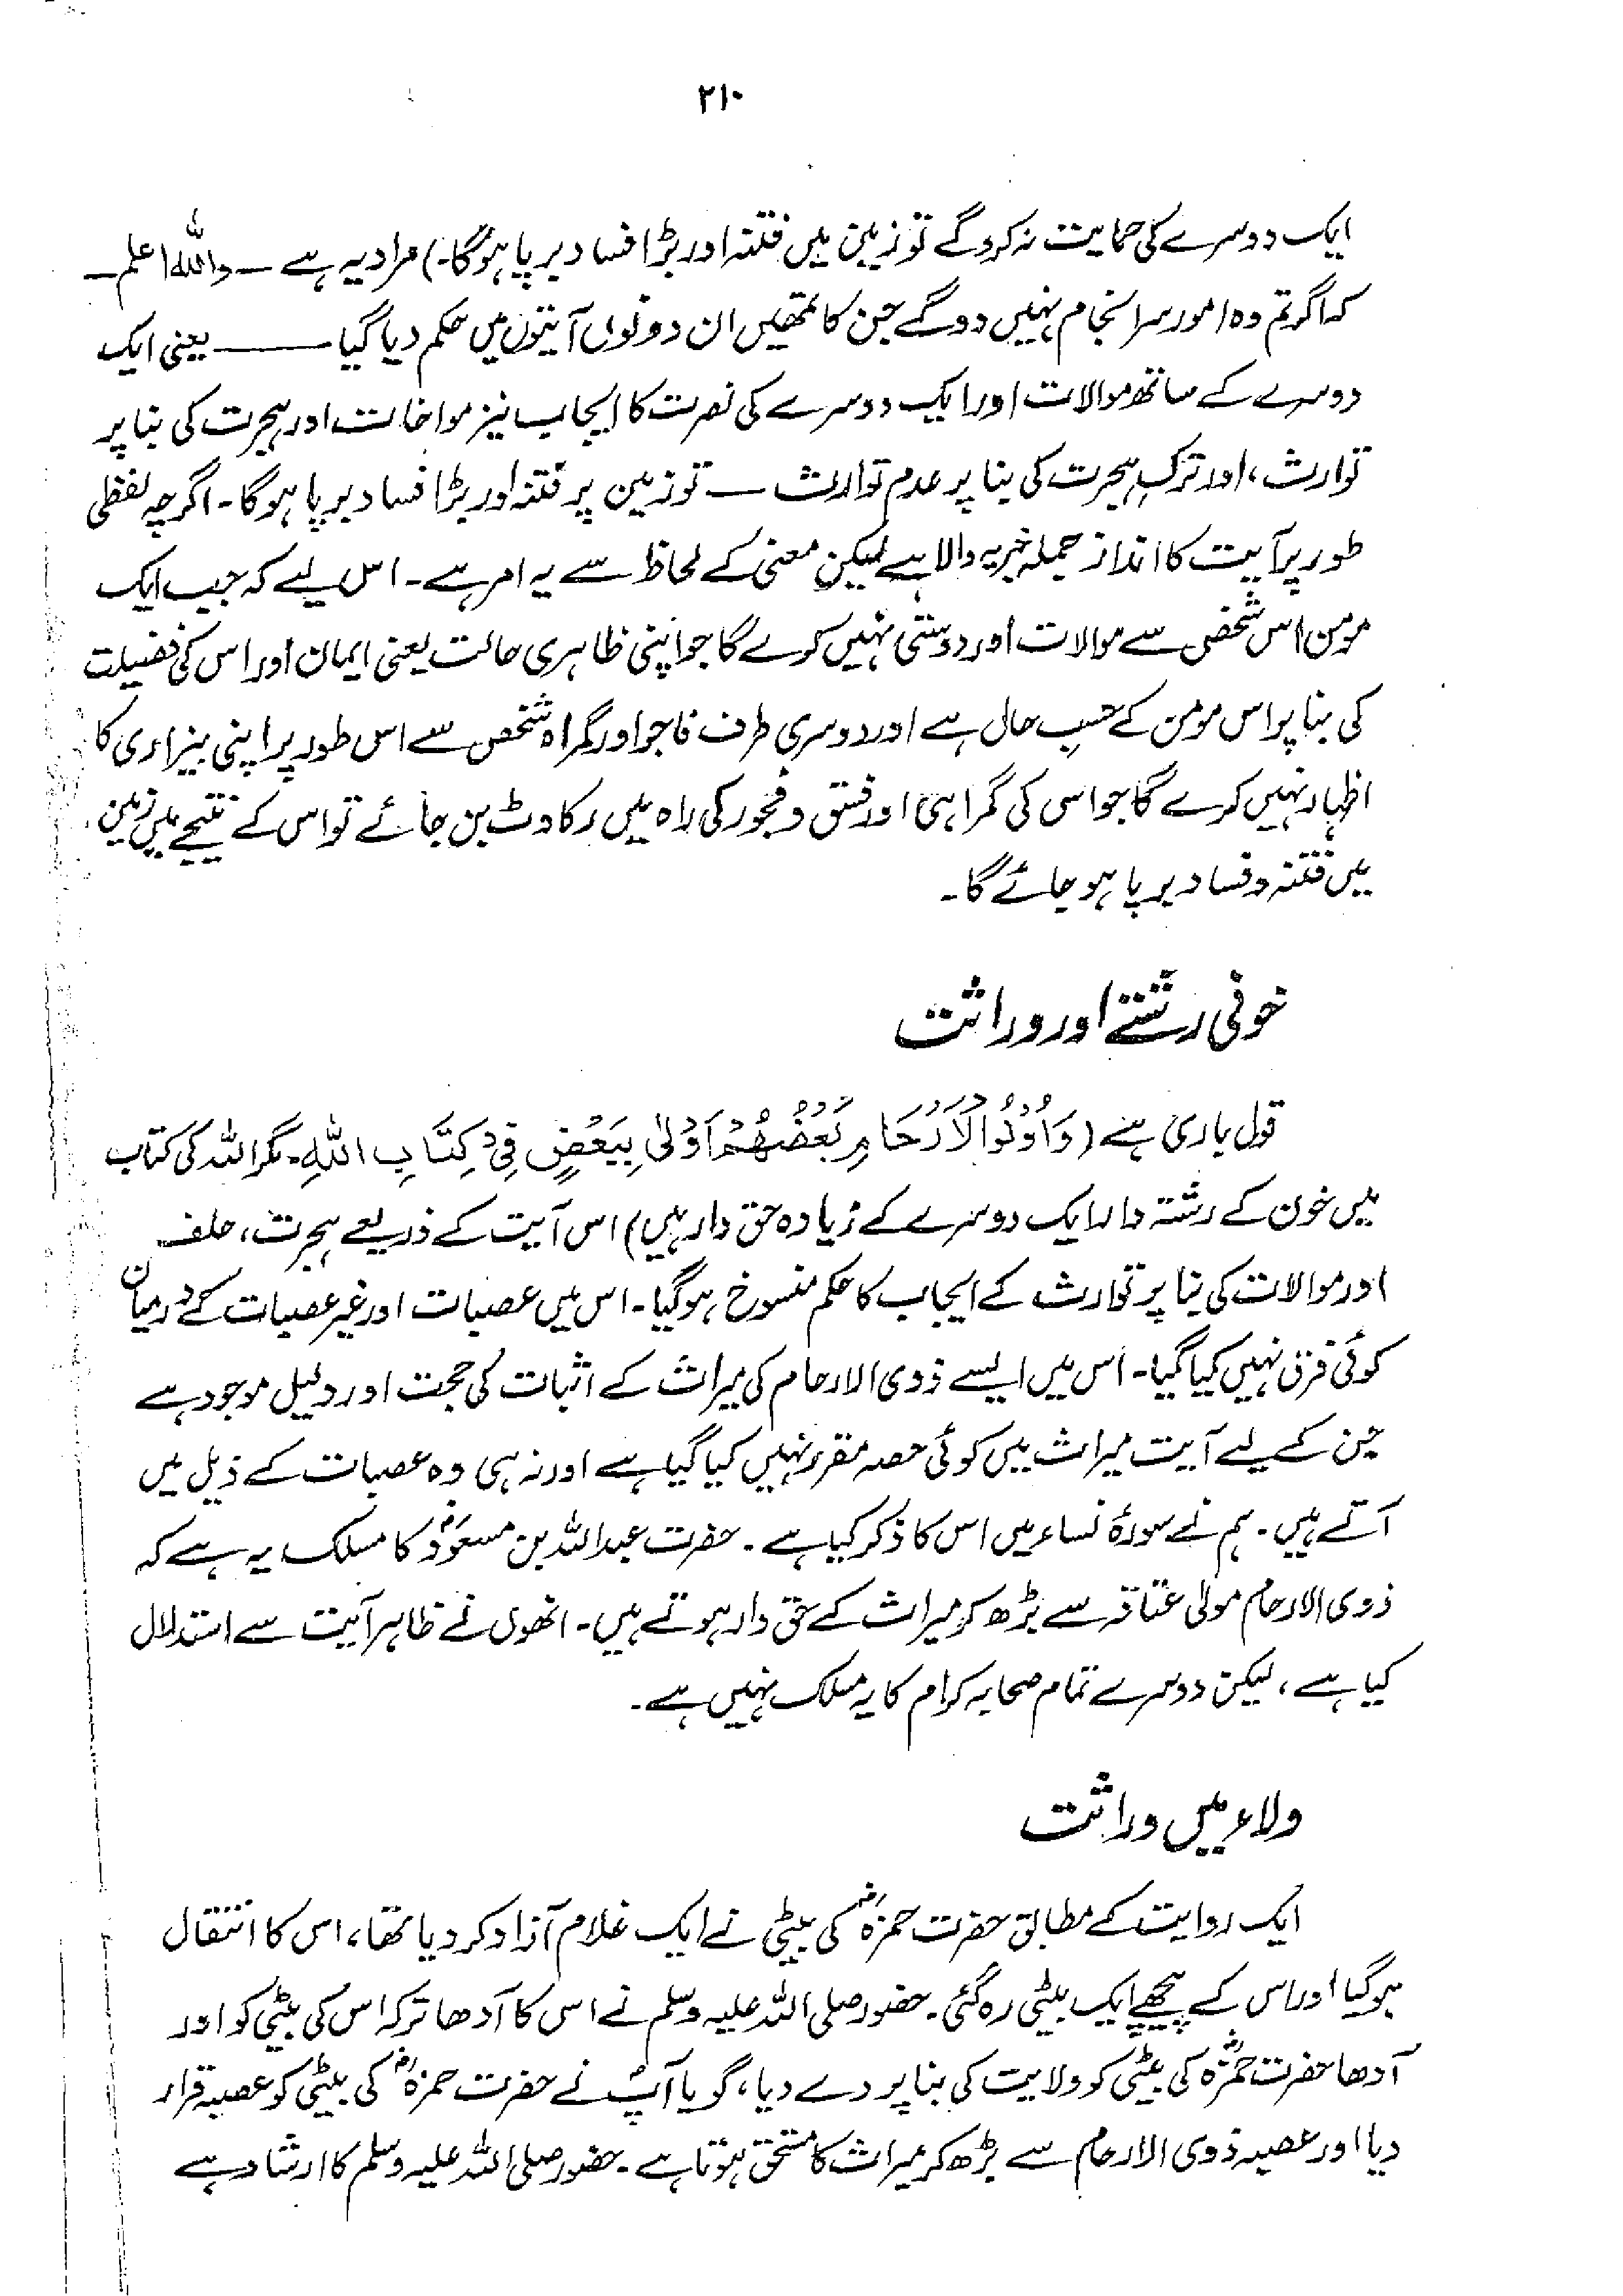 ۲۱۰
ایک دوسرے کی حمایت نہ کرو گے تو زمین میں فتنہ اور بڑا فساد برپا ہوگا۔) مراد یہ ہے — واللہ اعلم —
کہ اگر تم وہ امور سرانجام نہیں دو گے جن کا تمھیں ان دونوں آیتوں میں حکم دیا گیا — یعنی ایک
دوسرے کے ساتھ موالات اور ایک دوسرے کی نصرت کا ایجاب نیز مواخات اور ہجرت کی بنا پر
توارث، اور ترکِ ہجرت کی بنا پر عدم توارث — تو زمین پر فتنہ اور بڑا فساد برپا ہوگا۔ اگرچہ لفظی
طور پر آیت کا انداز جملہ خبریہ والا ہے لیکن معنی کے لحاظ سے یہ امر ہے۔ اس لیے کہ جب ایک
مومن اس شخص سے موالات اور دوستی نہیں کرے گا جو اپنی ظاہری حالت یعنی ایمان اور اس کی فضیلت
کی بنا پر اس مومن کے حسبِ حال ہے اور دوسری طرف فاجر اور گمراہ شخص سے اس طور پر اپنی بیزاری کا
اظہار نہیں کرے گا جو اس کی گمراہی اور فسق و فجور کی راہ میں رکاوٹ بن جائے تو اس کے نتیجے میں زمین
میں فتنہ و فساد برپا ہو جائے گا۔
خونی رشتے اور وراثت
قول باری ہے (وَاُولُوا الْاَرْحَامِ بَعْضُهُمْ اَوْلٰى بِبَعْضٍ فِيْ كِتَابِ اللهِ۔ مگر اللہ کی کتاب
میں خون کے رشتہ دار ایک دوسرے کے زیادہ حق دار ہیں) اس آیت کے ذریعے ہجرت، حلف
اور موالات کی بنا پر توارث کے ایجاب کا حکم منسوخ ہوگیا۔ اس میں عصبات اور غیر عصبات کے درمیان
کوئی فرق نہیں کیا گیا۔ اس میں ایسے ذوی الارحام کی میراث کے اثبات کی حجت اور دلیل موجود ہے
جن کے لیے آیت میراث میں کوئی حصہ مقرر نہیں کیا گیا ہے اور نہ ہی وہ عصبات کے ذیل میں
آتے ہیں۔ ہم نے سورۂ نساء میں اس کا ذکر کیا ہے۔ حضرت عبداللہ بن مسعودؓ کا مسلک یہ ہے کہ
ذوی الارحام مولیٰ عتاقہ سے بڑھ کر میراث کے حق دار ہوتے ہیں۔ انھوں نے ظاہر آیت سے استدلال
کیا ہے، لیکن دوسرے تمام صحابہ کرام کا یہ مسلک نہیں ہے۔
ولاء میں وراثت
ایک روایت کے مطابق حضرت حمزہؓ کی بیٹی نے ایک غلام آزاد کر دیا تھا، اس کا انتقال
ہوگیا اور اس کے پیچھے ایک بیٹی رہ گئی۔ حضور صلی اللہ علیہ وسلم نے اس کا آدھا ترکہ اس کی بیٹی کو اور
آدھا حضرت حمزہؓ کی بیٹی کو ولایت کی بنا پر دے دیا، گویا آپؐ نے حضرت حمزہؓ کی بیٹی کو عصبہ قرار
دیا اور عصبہ ذوی الارحام سے بڑھ کر میراث کا مستحق ہوتا ہے۔ حضور صلی اللہ علیہ وسلم کا ارشاد ہے